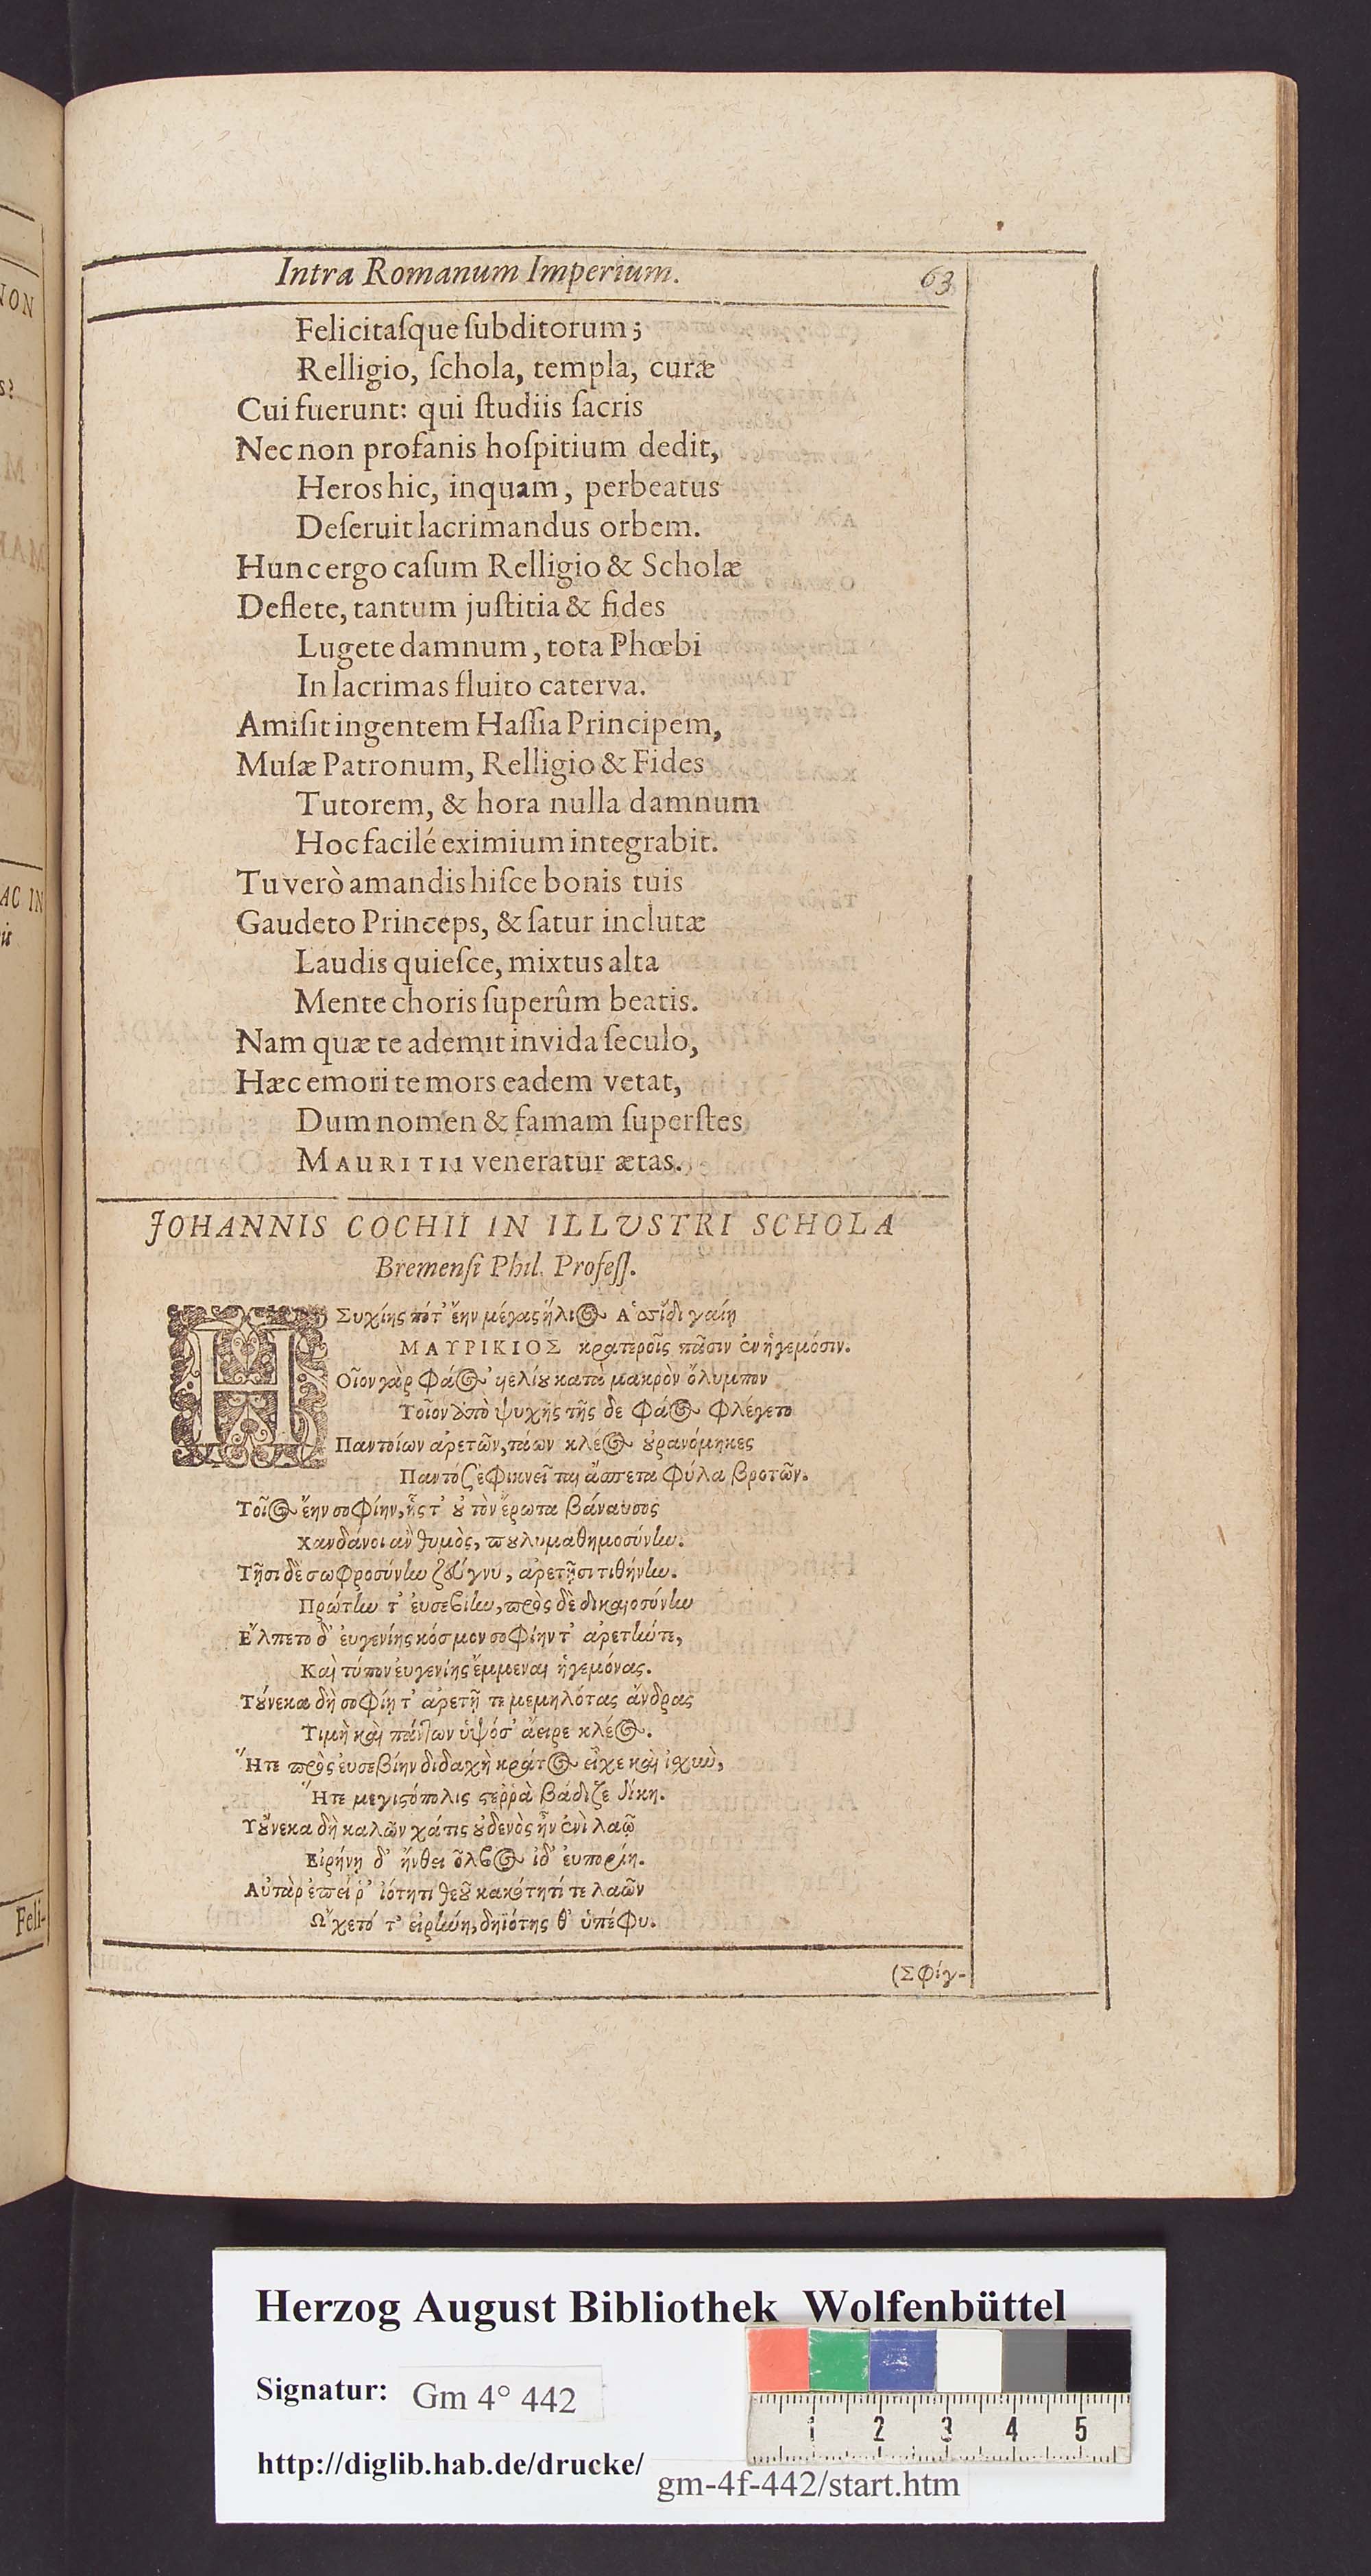 Intra Romanum Imperium. 63
Felicitaſque ſubditorum;
Relligio, ſchola, templa, curæ
Cui fuerunt: qui ſtudiis ſacris
Nec non profanis hoſpitium dedit,
Heros hic, inquam, perbeatus
Deſeruit lacrimandus orbem.
Hunc ergo caſum Relligio & Scholæ
Deflete, tantum juſtitia & fides
Lugete damnum, tota Phœbi
In lacrimas fluito caterva.
Amiſit ingentem Haſſia Principem,
Muſæ Patronum, Relligio & Fides
Tutorem, & hora nulla damnum
Hoc facilé eximium integrabit.
Tu verò amandis hiſce bonis tuis
Gaudeto Princeps, & ſatur inclutæ
Laudis quieſce, mixtus alta
Mente choris ſuperûm beatis.
Nam quæ te ademit invida ſeculo,
Hæc emori te mors eadem vetat,
Dum nomen & famam ſuperſtes
MAURITII veneratur ætas.
JOHANNIS COCHII IN ILLVSTRI SCHOLA
Bremenſi Phil. Profeſſ.
ΗΣυχίης πότ' ἔην μέγας ἥλιος Ἁσσίδι γαίῃ
ΜΑΥΡΙΚΙΟΣ κρατεροῖς πᾶσιν ἐν ἡγεμόσιν.
Οἷον γὰρ φάος ἠελίου κατὰ μακρὸν ὄλυμπον
Τοῖον ἀπὸ ψυχῆς τῆς δε φάος φλέγετο
Παντοίων ἀρετῶν, τάων κλέος οὐρανόμηκες
Παντόζ' ἐφικνεῖται ἄσπετα φύλα βροτῶν.
Τοῖος ἔην σοφίην, ἧς τ' οὐ τὸν ἔρωτα βάναυσος
Χανδάνοι ἂν θυμὸς, πουλυμαθημοσύνην.
Τῇσι δὲ σωφροσύνην ζεύγνυ, ἀρετῇσι τιθήνην.
Πρώτην τ' ἐυσεβίην, πρὸς δὲ δικαιοσύνην
Ἔλπετο δ' ἐυγενίης κόσμον σοφίην τ' ἀρετήν τε,
Καὶ τύπον ἐυγενίης ἔμμεναι ἡγεμόνας.
Τούνεκα δὴ σοφίῃ τ' ἀρετῇ τε μεμηλότας ἄνδρας
Τιμὴ καὶ πάντων ὑψόσ' ἄειρε κλέος.
Ἥτε πρὸς ἐυσεβίην διδαχὴ κράτος εἶχε καὶ ἰχὺν,
Ἥτε μεγιςόπολις ςερρὰ βάδιζε δίκη.
Τοὔνεκα δὴ καλῶν χάτις οὐδενὸς ἦν ἐνὶ λαῷ
Εἰρήνη δ' ἤνθει ὄλβος ἰδ' ἐυπορίη.
Αὐτὰρ ἐπεί ῥ' ἰότητι θεοῦ κακότητί τε λαῶν
Ὤχετό τ' εἰρήνη, δηϊότης θ' ὑπέφυ.
(Σφίγ-
Herzog August Bibliothek Wolfenbüttel
Signatur: Gm 4° 442
http://diglib.hab.de/drucke/ gm-4f-442/start.htm
1 2 3 4 5
NON
AC IN
Feli-